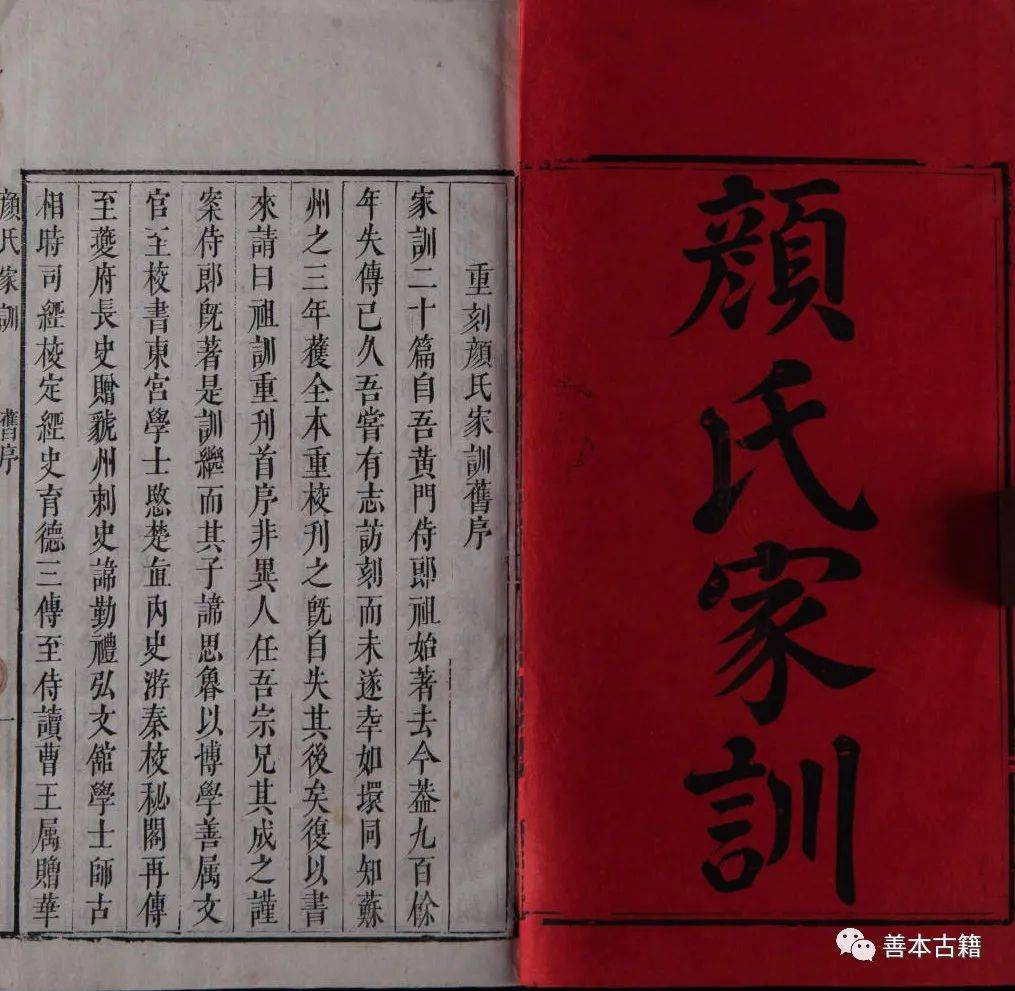 顏氏家訓
重刻顏氏家訓舊序
家訓二十篇自吾黃門侍郎祖始著去今葢九百餘
年失傳已久吾嘗有志訪刻而未遂幸如環同知蘇
州之三年獲全本重校刊之旣自失其後矣復以書
來請曰祖訓重刊首序非異人任吾宗兄其成之謹
案侍郎旣著是訓繼而其子諱思魯以博學善属文
官至校書東宮學士愍楚直內史游秦校秘閣再傳
至夔府長史贈虢州刺史諱勤禮弘文館學士師古
相時司經校定經史育德三傳至侍讀曹王属贈華
顏氏家訓 舊序 一
善本古籍